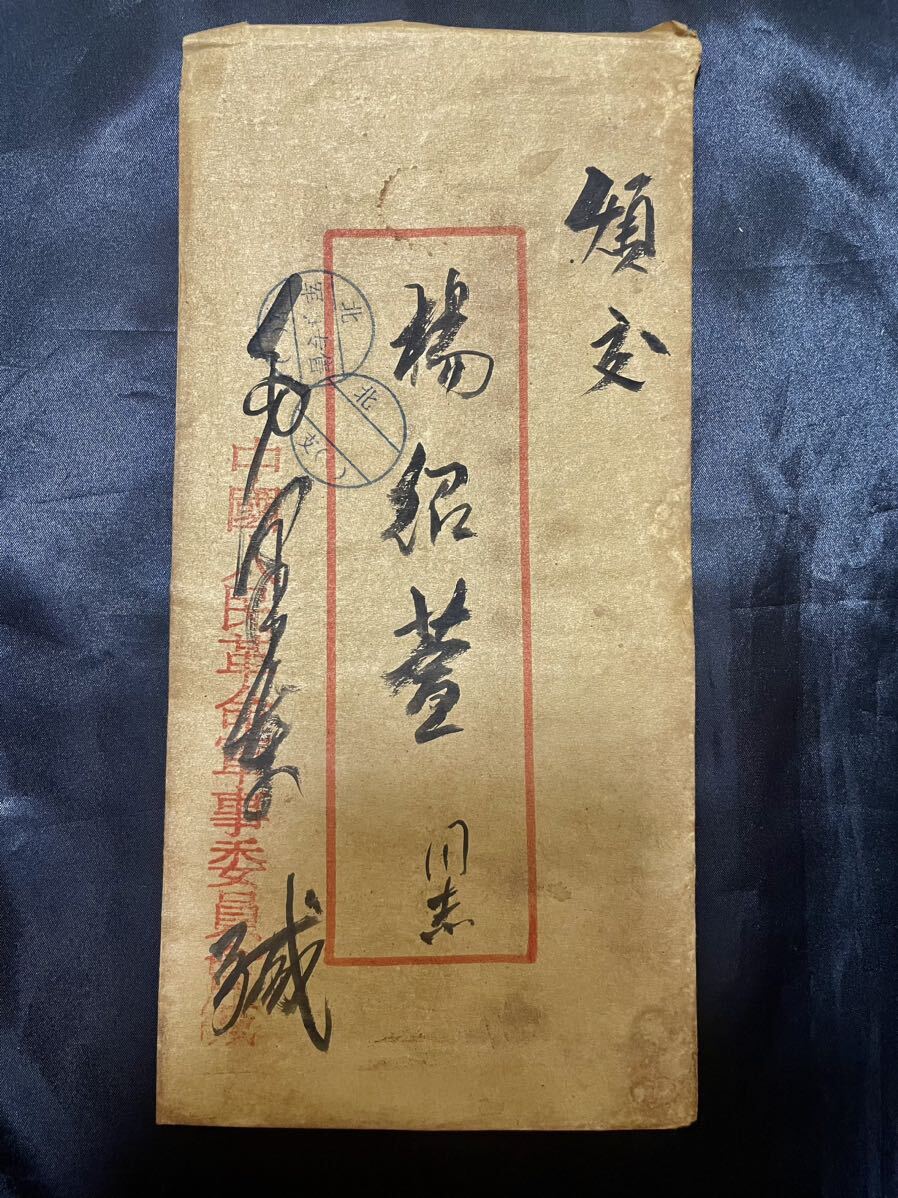 煩交
楊紹萱同志
毛澤東緘
中國人民革命軍事委員會緘
北
北